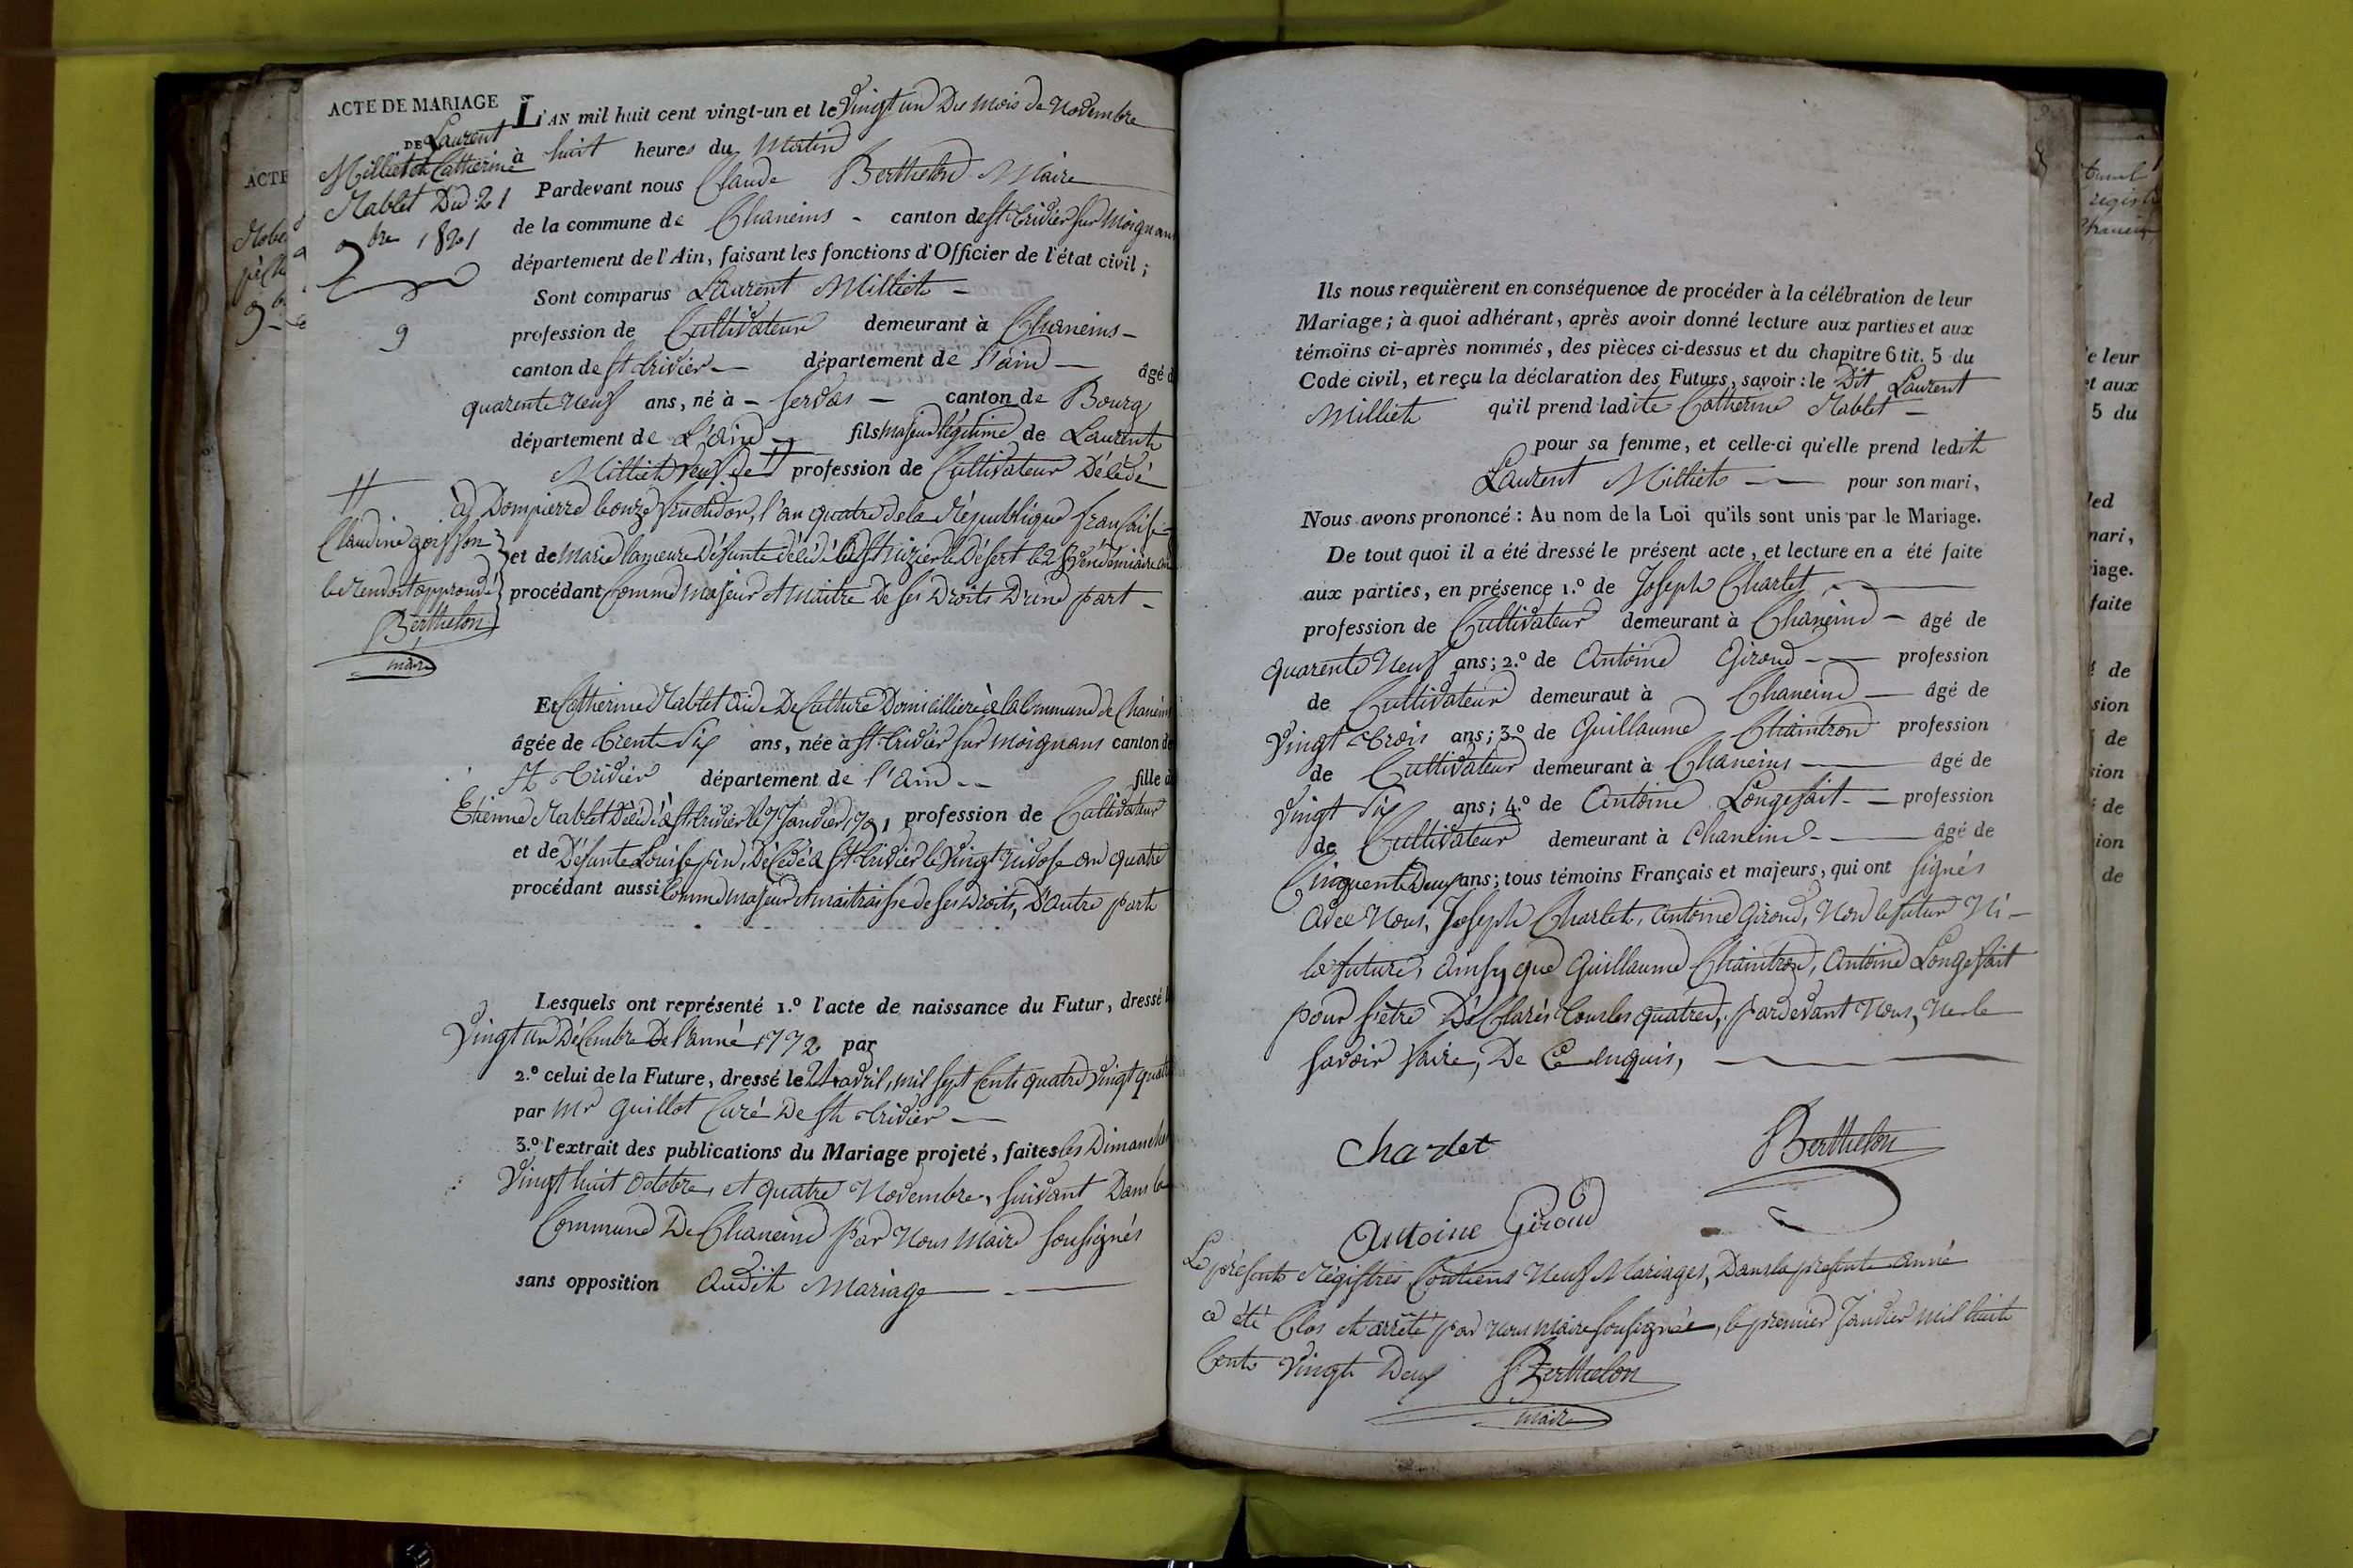 ACTE DE MARIAGE
DE Laurent
Milliet et Catherine
Rablet Du 21
9bre 1821
9
L'AN mil huit cent vingt-un et le Vingt un Du Mois de Novembre
à huit heures du Matin
Pardevant nous Claude Berthelon Maire
de la commune de Chaneins - canton de St trivier Sur Moignans
département de l'Ain, faisant les fonctions d'Officier de l'état civil ;
Sont comparus Laurent Milliet -
profession de Cultivateur demeurant à Chaneins -
canton de St trivier - département de l'ain - âgé d
quarente Neuf ans, né à - Servas - canton de Bourg
département de L'ain - fils Majeur légitime de Laurent
Milliet veuf de # profession de Cultivateur Décédé
à Dompierre le onze fructidor, l'an quatre de la République francaise
et de Marie lameure Défunte décédé à St Nizier le Désert le 28 Vendémiaire an
procédant Comme Majeur et Maitre De Ses Droits D'une part -
#
Claudine goiffon
le renvoit approuvé
Berthelon
maire
Et Catherine Rablet aide De Culture Domicillière à la Commune de Chaneins
âgée de trente Six ans, née à St trivier Sur Moignans canton de
St Trivier département de l'ain -- fille d
Etienne Rablet Décédé à St trivier le 7 Janvier 1791 profession de Cultivateur
et de Défunte Louise pin, Décédé à St trivier le Vingt Nivose an quatre
procédant aussi Comme Majeur et maitraisse de ses Droits, D'autre part
Lesquels ont représenté 1.º l'acte de naissance du Futur, dressé l
Vingt un Décembre De l'année 1772 par
2.º celui de la Future, dressé le 21 avril, mil sept Cent quatre Vingt quatr
par Mr Guillot Curé De St trivier -
3.º l'extrait des publications du Mariage projeté, faites les Dimanches
Vingt huit Octobre, et quatre Novembre, Suivant Dans la
Commune De Chaneins par Nous Maire Sousignés
sans opposition audit Mariage
Ils nous requièrent en conséquence de procéder à la célébration de leur
Mariage ; à quoi adhérant, après avoir donné lecture aux parties et aux
témoins ci-après nommés, des pièces ci-dessus et du chapitre 6 tit. 5 du
Code civil, et reçu la déclaration des Futurs, savoir : le Dit Laurent
Milliet qu'il prend ladite Catherine Rablet -
pour sa femme, et celle-ci qu'elle prend ledit
Laurent Milliet - pour son mari,
Nous avons prononcé : Au nom de la Loi qu'ils sont unis par le Mariage.
De tout quoi il a été dressé le présent acte, et lecture en a été faite
aux parties, en présence 1.º de Joseph Charlet
profession de Cultivateur demeurant à Chaneins - âgé de
quarente Neuf ans ; 2.º de Antoine Giroud - profession
de Cultivateur demeuraut à Chaneins - âgé de
Vingt trois ans ; 3.º de Guillaume Chaintron profession
de Cultivateur demeurant à Chaneins - âgé de
Vingt Six ans ; 4.º de Antoine Longefait - profession
de Cultivateur demeurant à Chaneins - âgé de
Cinquente Deux ans ; tous témoins Français et majeurs, qui ont Signés
avec Nous, Joseph Charlet, Antoine Giroud, Non le futur Ni -
la future, ainsy que Guillaume Chaintron, Antoine Longefait
pour S'être Déclarés tous les quatres, pardevant Nous, Ne le
Savoir faire, De Ce enquis,
Charlet
Berthelon
Antoine Giroud
Le présent Régistres Contiens Neuf Mariages, Dans la présente année
a été Clos et arrêté par nous Maire Sousignée, le premier Janvier mil huit
Cent Vingt Deux Berthelon
maire